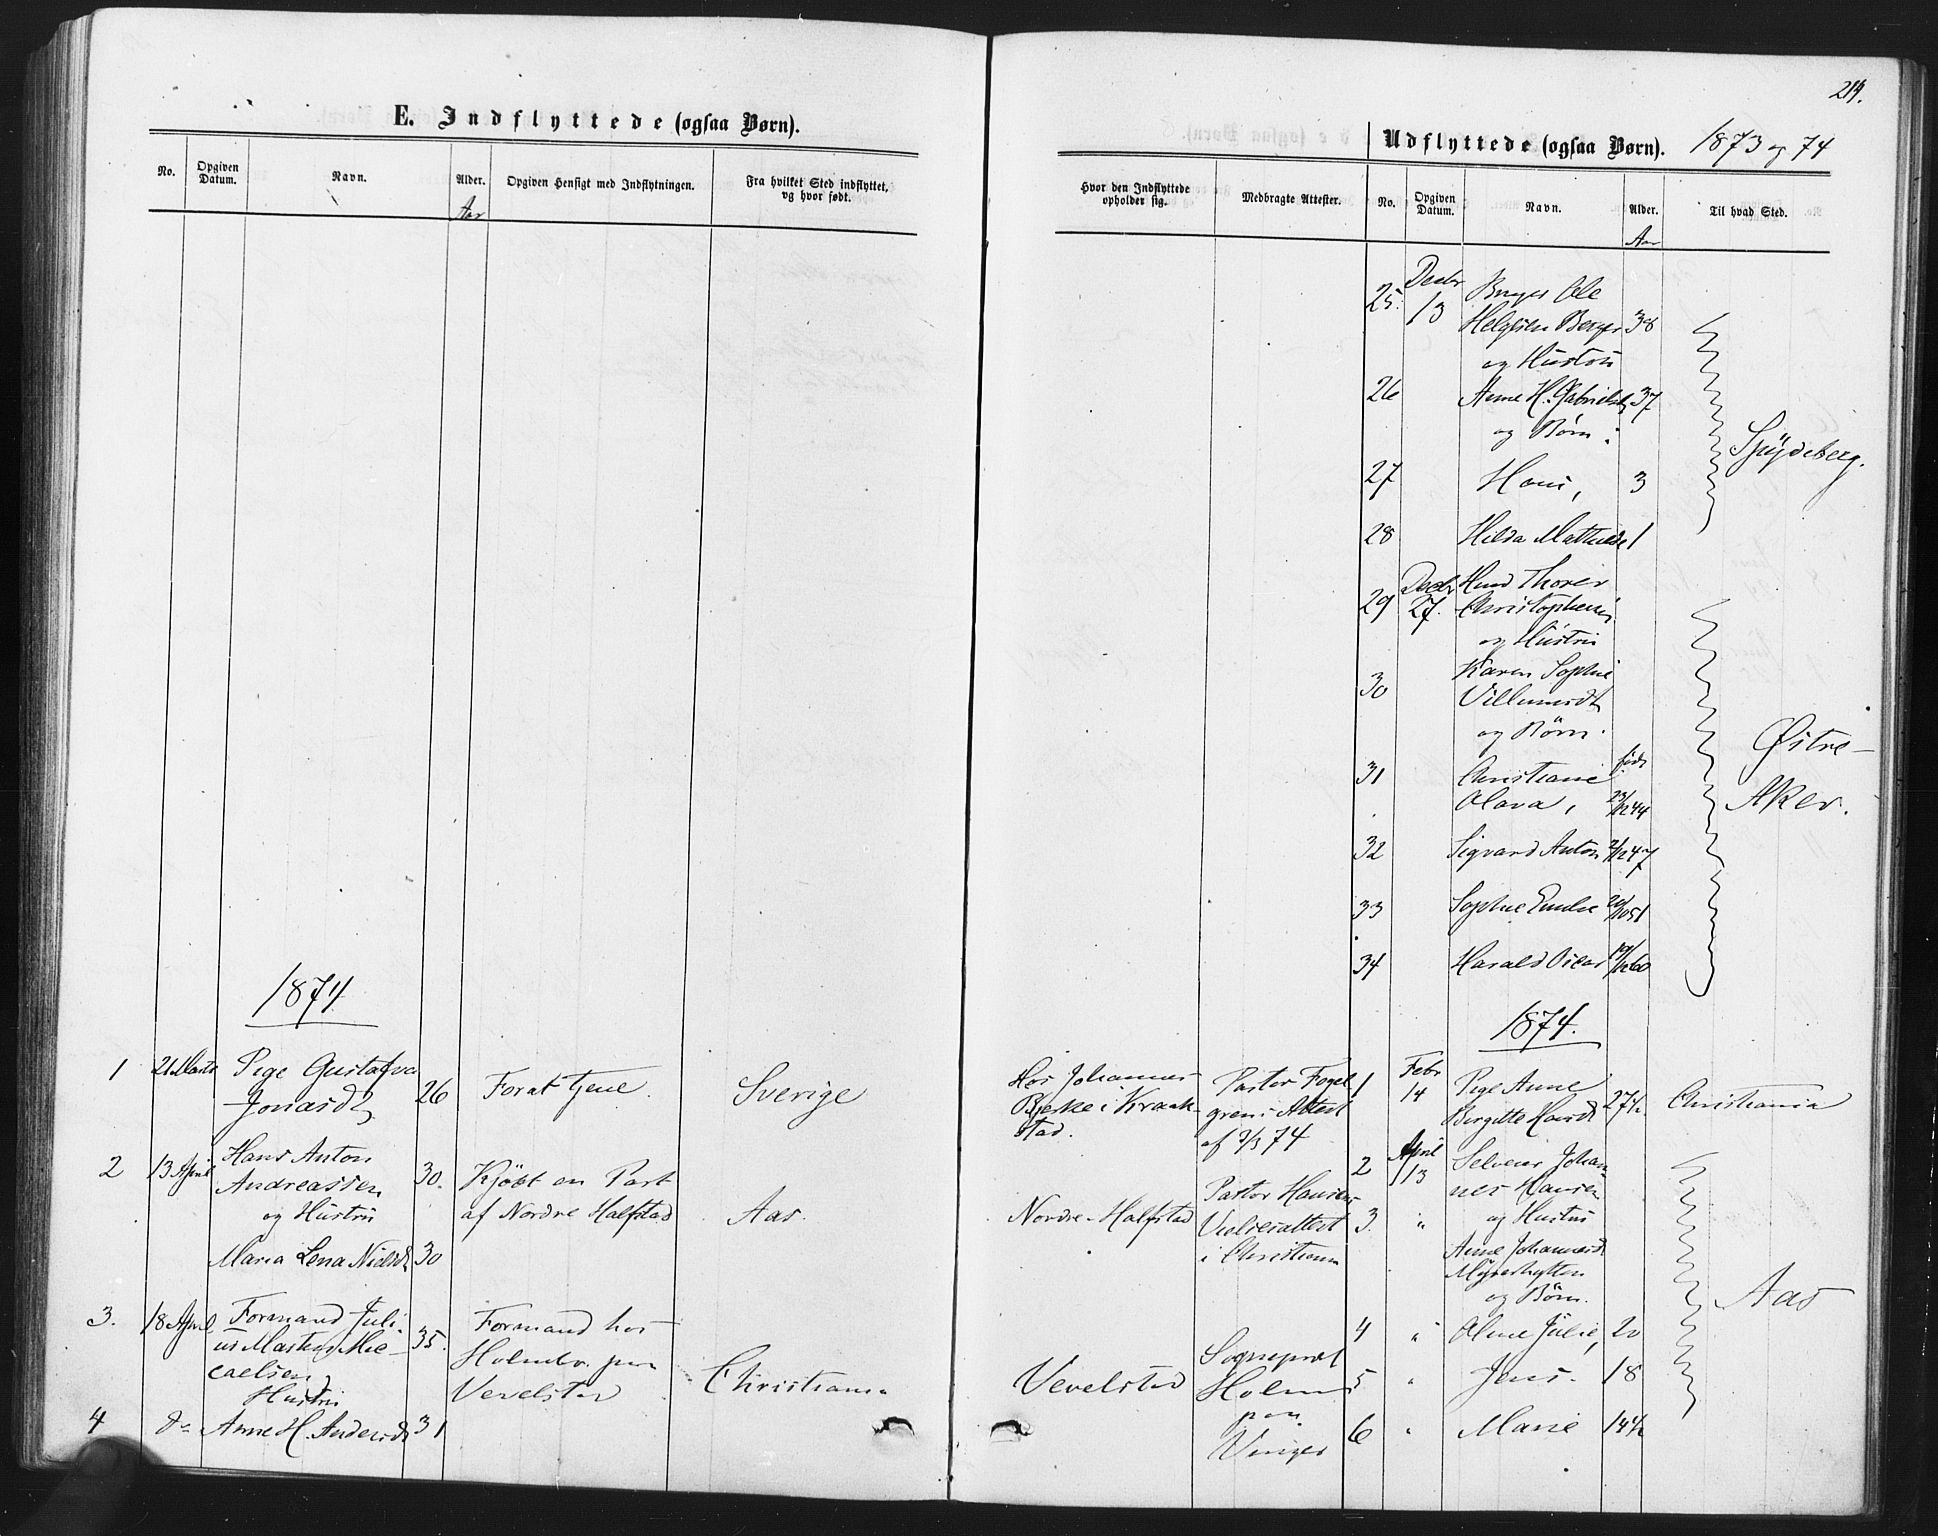 E. Indflyttede (ogsaa Børn).
No. Opgiven Datum. Navn. Alder. Opgiven Hensigt med Indflytningen. Fra hvilket Sted indflyttet, og hvor født.
Aar
1874.
1 21 Marts Pige Gustafva
Jonasd. 26 For at tjene. Sverige
2 13 April Hans Anton
Andreassen 30. Kjöbt en Part
og Hustru af Nordre Halfstad Aas.
Maria Lena Nielsd. 30
3. 18 April Formand Juli-
us Mic- 35. Formand hos
caelsen, Holmbr. paa
Hustru Vevelstad Christiania
4 do Anne H. Andersd. 31
214.
Udflyttede (ogsaa Børn). 1873 og 74
Hvor den Indflyttede opholder sig. Medbragte Attester. No. Opgiven Datum. Navn. Alder. Til hvad Sted.
Aar
25. Decbr 13 Ole
Helgesen Berger 38
og Hustru
26 Anne H. Gabrielsd. 37
og Børn:
Spÿdeberg.
27 Hans, 3
28 Hilda Mathilde 1
29 Decbr 27. Thorer
Christophersen
og Hustru
30 Karen Sophie
Villumsdt
og Børn.
Østre-
31 Christiane født
Olava, 23/12 44 Aker.
32 Sigvard Anton 2/12 47
33 Sophie Emilie 20/10 51
34 Harald Oscar 19/12 60
1874.
Hos Johannes Pastor Fogel-
Bjerke i Kraak- grens Attest
stad. af 3/3 74
1 Febr 14 Pige Anne
Birgitte Hansd. 27 1/2 Christiania
2 April 13 Selveier Johan-
nes Hansen
Nordre-Halfstad Pastor Hansens
Vielsesattest
i Christiania
3. " og Hustru
Anne Johannesd.
og Børn.
Aas
4 " Oline Julie, 20
Vevelstad Sognepræst
Holm
paa
Vinger
5 " Jens. 18
6 " Marie 14 1/2